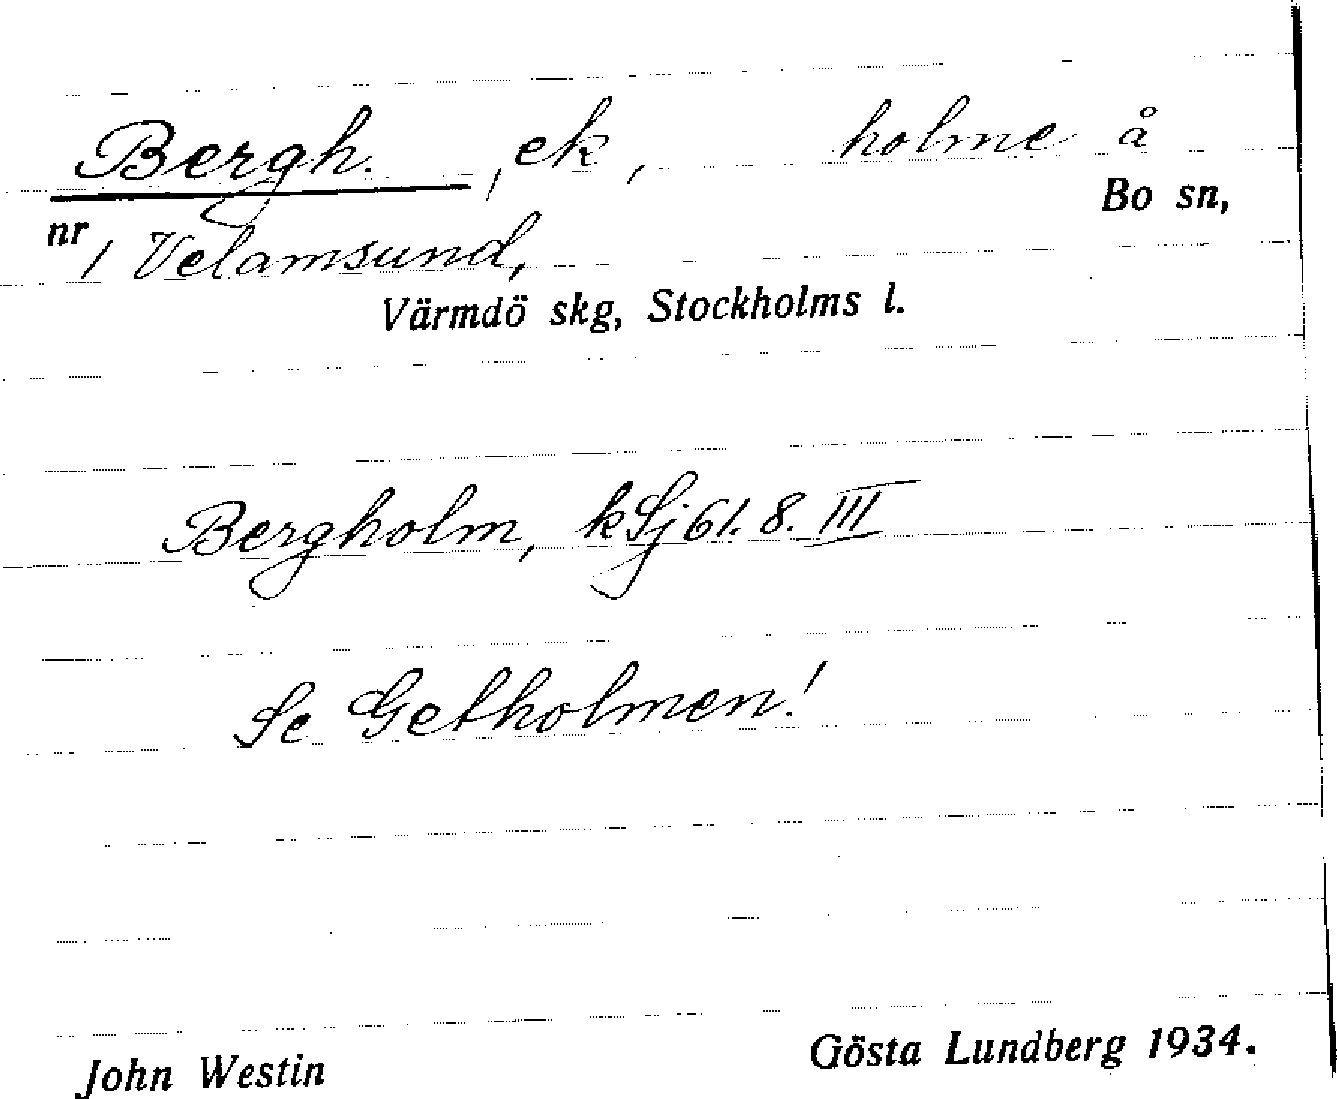 Bergh. , ek, holme å
Bo sn,
nr 1 Velamsund,
Värmdö skg, Stockholms l.
Bergholm, kSj 61. 8. III
Se Getholmen!
John Westin Gösta Lundberg 1934.